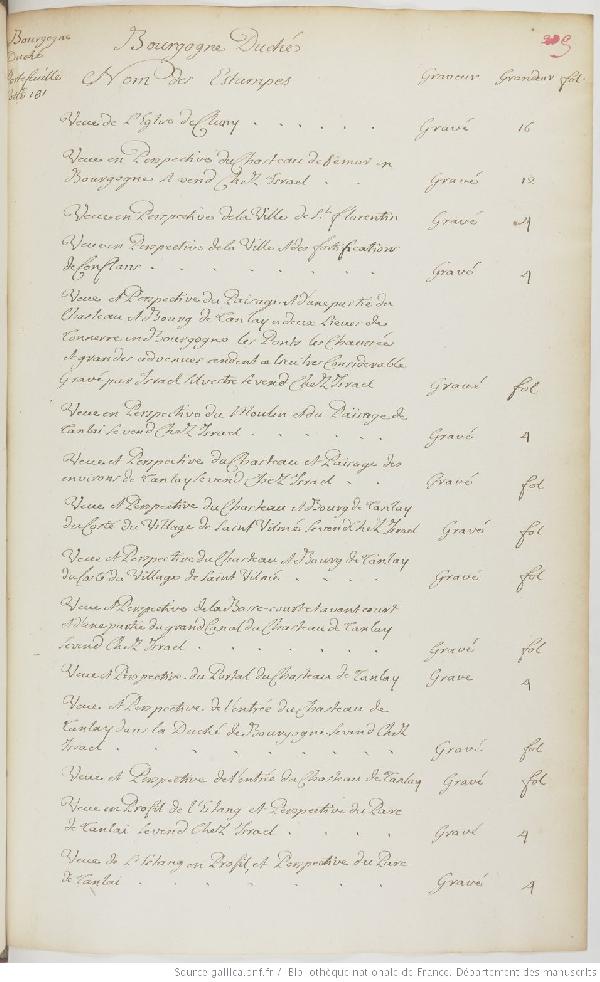 Bourgogne
Duché
Portefeuille
Cotté 181
Bourgogne Duché
Nom des Estampes Graveur Grandeur fol.
Veue de l'Eglise de Cluny . . . . . . Gravé 16
Veue en Perspective du Chasteau de Semur en
Bourgogne se vend Chez Israel . . Gravé 12
Veue en Perspective de la Ville de St. florentin Gravé 4
Veue en Perspective de la Ville et des fortifications
de Conflans . . . . . . . Gravé 4
Veue et Perspective du Païsage et d'une partie du
Chasteau et Bourg de Tanlay a deux lieues de
Tonnerre en Bourgogne les Ponts les Chaussées
et grandes advenues rendent ce lieu tres Considerable
Gravé par Israel silvestre se vend Chez Israel Gravé fol
Veue en Perspective du Moulin et du Païsage de
Tanlai se vend Chez Israel . . . . . . Gravé 4
Veue et Perspective du Chasteau et Païsage des
environs de Tanlay se vend Chez Israel . . Gravé fol
Veue et Perspective du Chasteau et Bourg de Tanlay
du Costé du Village de Saint Vilmé se vend chez Israel Gravé fol
Veue et Perspective du Chasteau et Bourg de Tanlay
du Costé du Village de Saint Vilmé . . . . Gravé fol
Veue et Perspective de la Basse-court et avant court
et d'une partie du grand Canal du Chasteau de Tanlay
se vend Chez Israel . . . . . . . Gravé fol
Veue et Perspective du Portal du Chasteau de Tanlay Grave 4
Veue et Perspective de l'entrée du Chasteau de
Tanlay dans la Duché de Bourgogne se vend Chez
Israel . . . . . . . . . Gravé fol
Veue et Perspective de l'entrée du Chasteau de Tanlay Gravé fol
Veue en Profil de l'Etang et Perspective du Parc
de Tanlai se vend Chez Israel . . . . Gravé 4
Veue de l'Estang en Profil, et Perspective du Parc
de Tanlai . . . . . . . . Gravé 4
Source gallica.bnf.fr / Bibliothèque nationale de France. Département des manuscrits